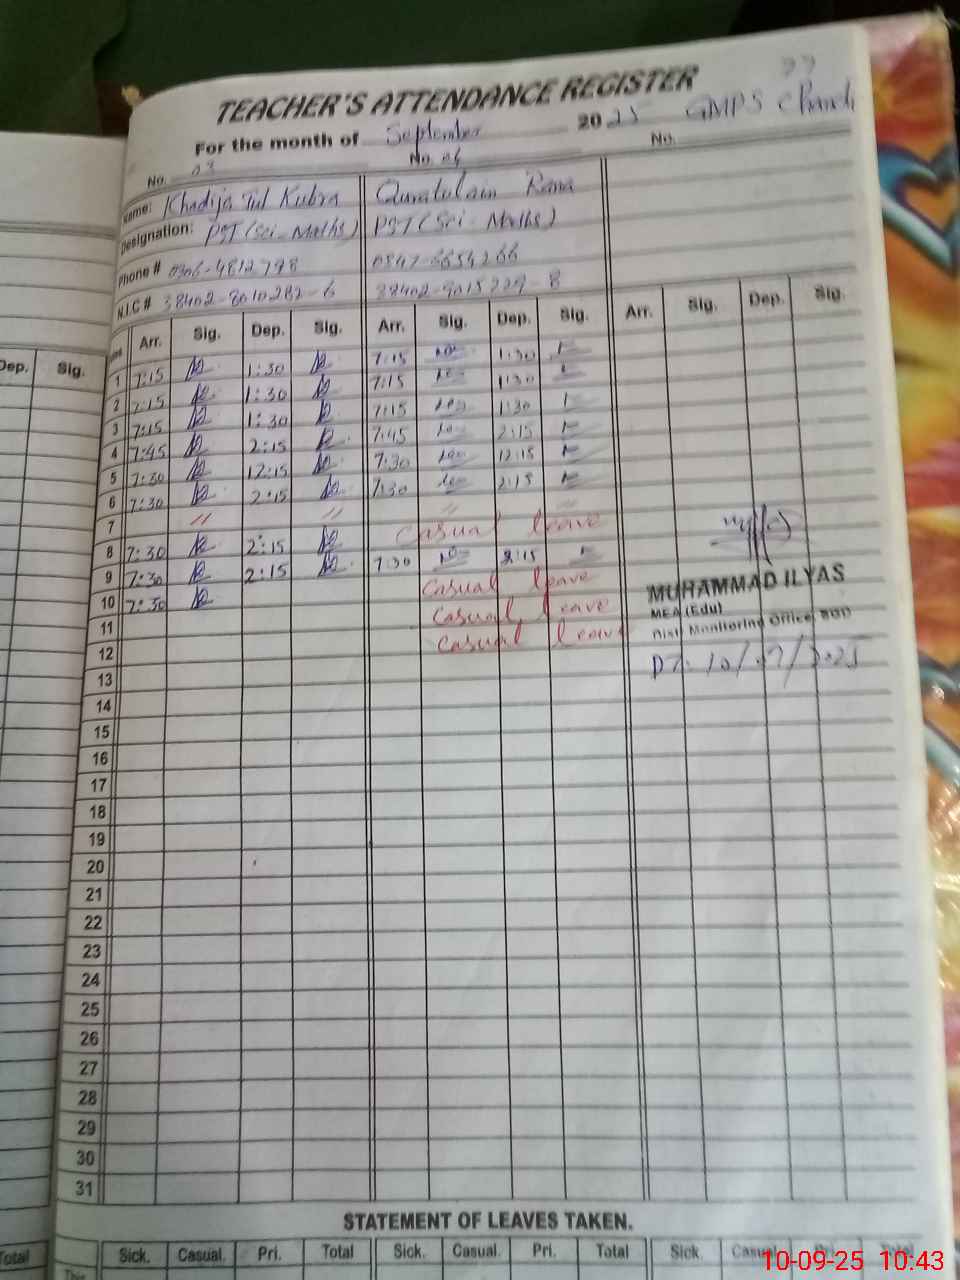 77
TEACHER'S ATTENDANCE REGISTER
For the month of September 2025 GMPS Chandi
No. 03 No. 04 No.
Name: Khadija Tul Kubra Quratulain Rana
Designation: PST (Sci-Maths) PST (Sci-Maths)
Phone # 0306-4812798 0347-6654266
N.I.C # 38402-8010282-6 38402-9015229-8
Arr. Sig. Dep. Sig. Arr. Sig. Dep. Sig. Arr. Sig. Dep. Sig.
Dep. Sig.
1 7:15 1:30 7:15 1:30
2 7:15 1:30 7:15 1:30
3 7:15 1:30 7:15 1:30
4 7:45 2:15 7:45 2:15
5 7:30 12:15 7:30 12:15
6 7:30 2:15 7:30 2:15
7 // // // //
8 7:30 2:15 Casual leave
9 7:30 2:15 7:30 2:15
10 7:30 Casual leave
11 Casual leave
12 Casual leave
MUHAMMAD ILYAS
MEA (Edu)
Distt Monitoring Office
DT. 10/09/2025
13
14
15
16
17
18
19
20
21
22
23
24
25
26
27
28
29
30
31
STATEMENT OF LEAVES TAKEN.
Total Sick. Casual. Pri. Total Sick. Casual. Pri. Total Sick. Casual. Pri. Total
This
10-09-25 10:43